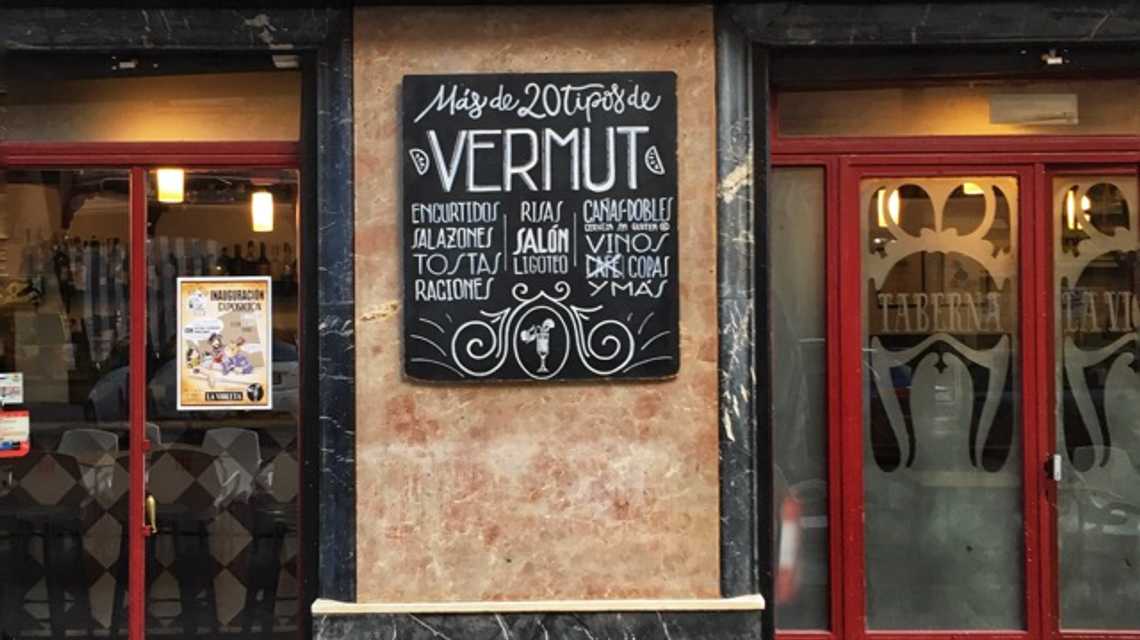 Más de 20 tipos de
VERMUT
ENCURTIDOS
SALAZONES
TOSTAS
RACIONES
RISAS
SALÓN
LIGOTEO
CAÑAS·DOBLES
CERVEZA SIN GLUTEN
VINOS
CAFÉ COPAS
Y MÁS
INAUGURACIÓN
EXPOSICIÓN
CON
LA VIOLETA
TABERNA
LA VIO